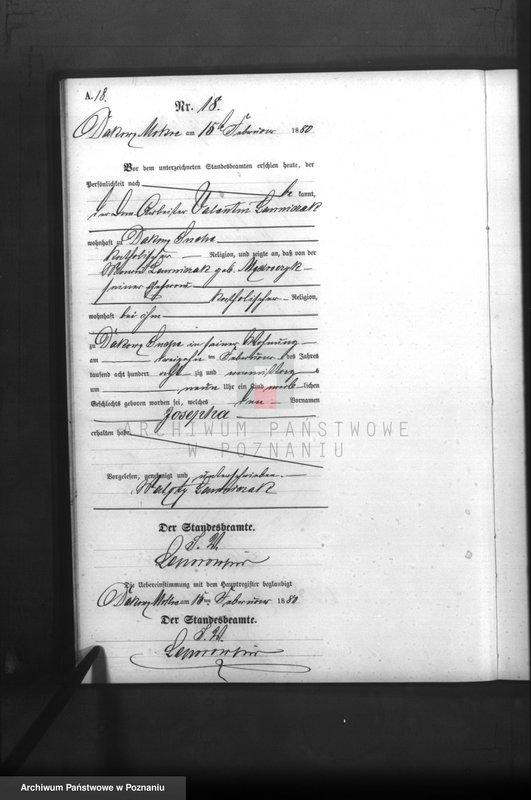 A. 18.
Nr. 18.
Dakowy Mokre am 15ten Februar 1880
Vor dem unterzeichneten Standesbeamten erschien heute, der
Persönlichkeit nach be kannt,
der Arbeiter Valentin
wohnhaft zu Dakowy Suche
katholischer Religion, und zeigte an, daß von der
geb.
seiner Ehefrau katholischer Religion,
wohnhaft bei ihm
zu Dakowy Suche in seiner Wohnung
am dreizehn ten Februar des Jahres
tausend acht hundert acht zig und Vormittags
um neun Uhr ein Kind weib lichen
Geschlechts geboren worden sei, welches den Vornamen
Josepha
erhalten habe
ARCHIWUM PAŃSTWOWE
W POZNANIU
Vorgelesen, genehmigt und unterschrieben.
Walenty
Der Standesbeamte.
Die Uebereinstimmung mit dem Hauptregister beglaubigt
Dakowy Mokre am 15ten Februar 1880
Der Standesbeamte.
Archiwum Państwowe w Poznaniu